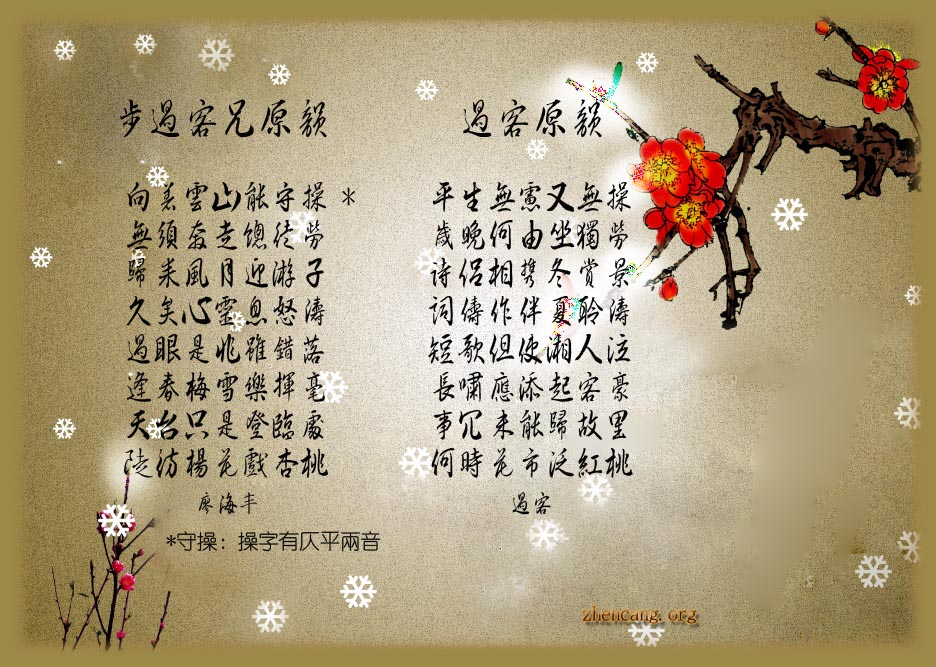 步過客兄原韻
向雲山能守操 *
無須奔走總徒勞
歸來風月迎游子
久矣心靈息怒濤
過眼是非雖錯落
逢春梅雪樂揮毫
天台只是登臨處
彷楊花戲杏桃
廖海丰
*守操：操字有仄平兩音
過客原韻
平生無憲又無操
歲晚何由坐獨勞
詩侶相攜冬賞景
詞儔作伴夏聆濤
短歌但使湘人泣
長嘯應添起客豪
事冗未能歸故里
何時花市泛紅桃
過客
zhencang.org